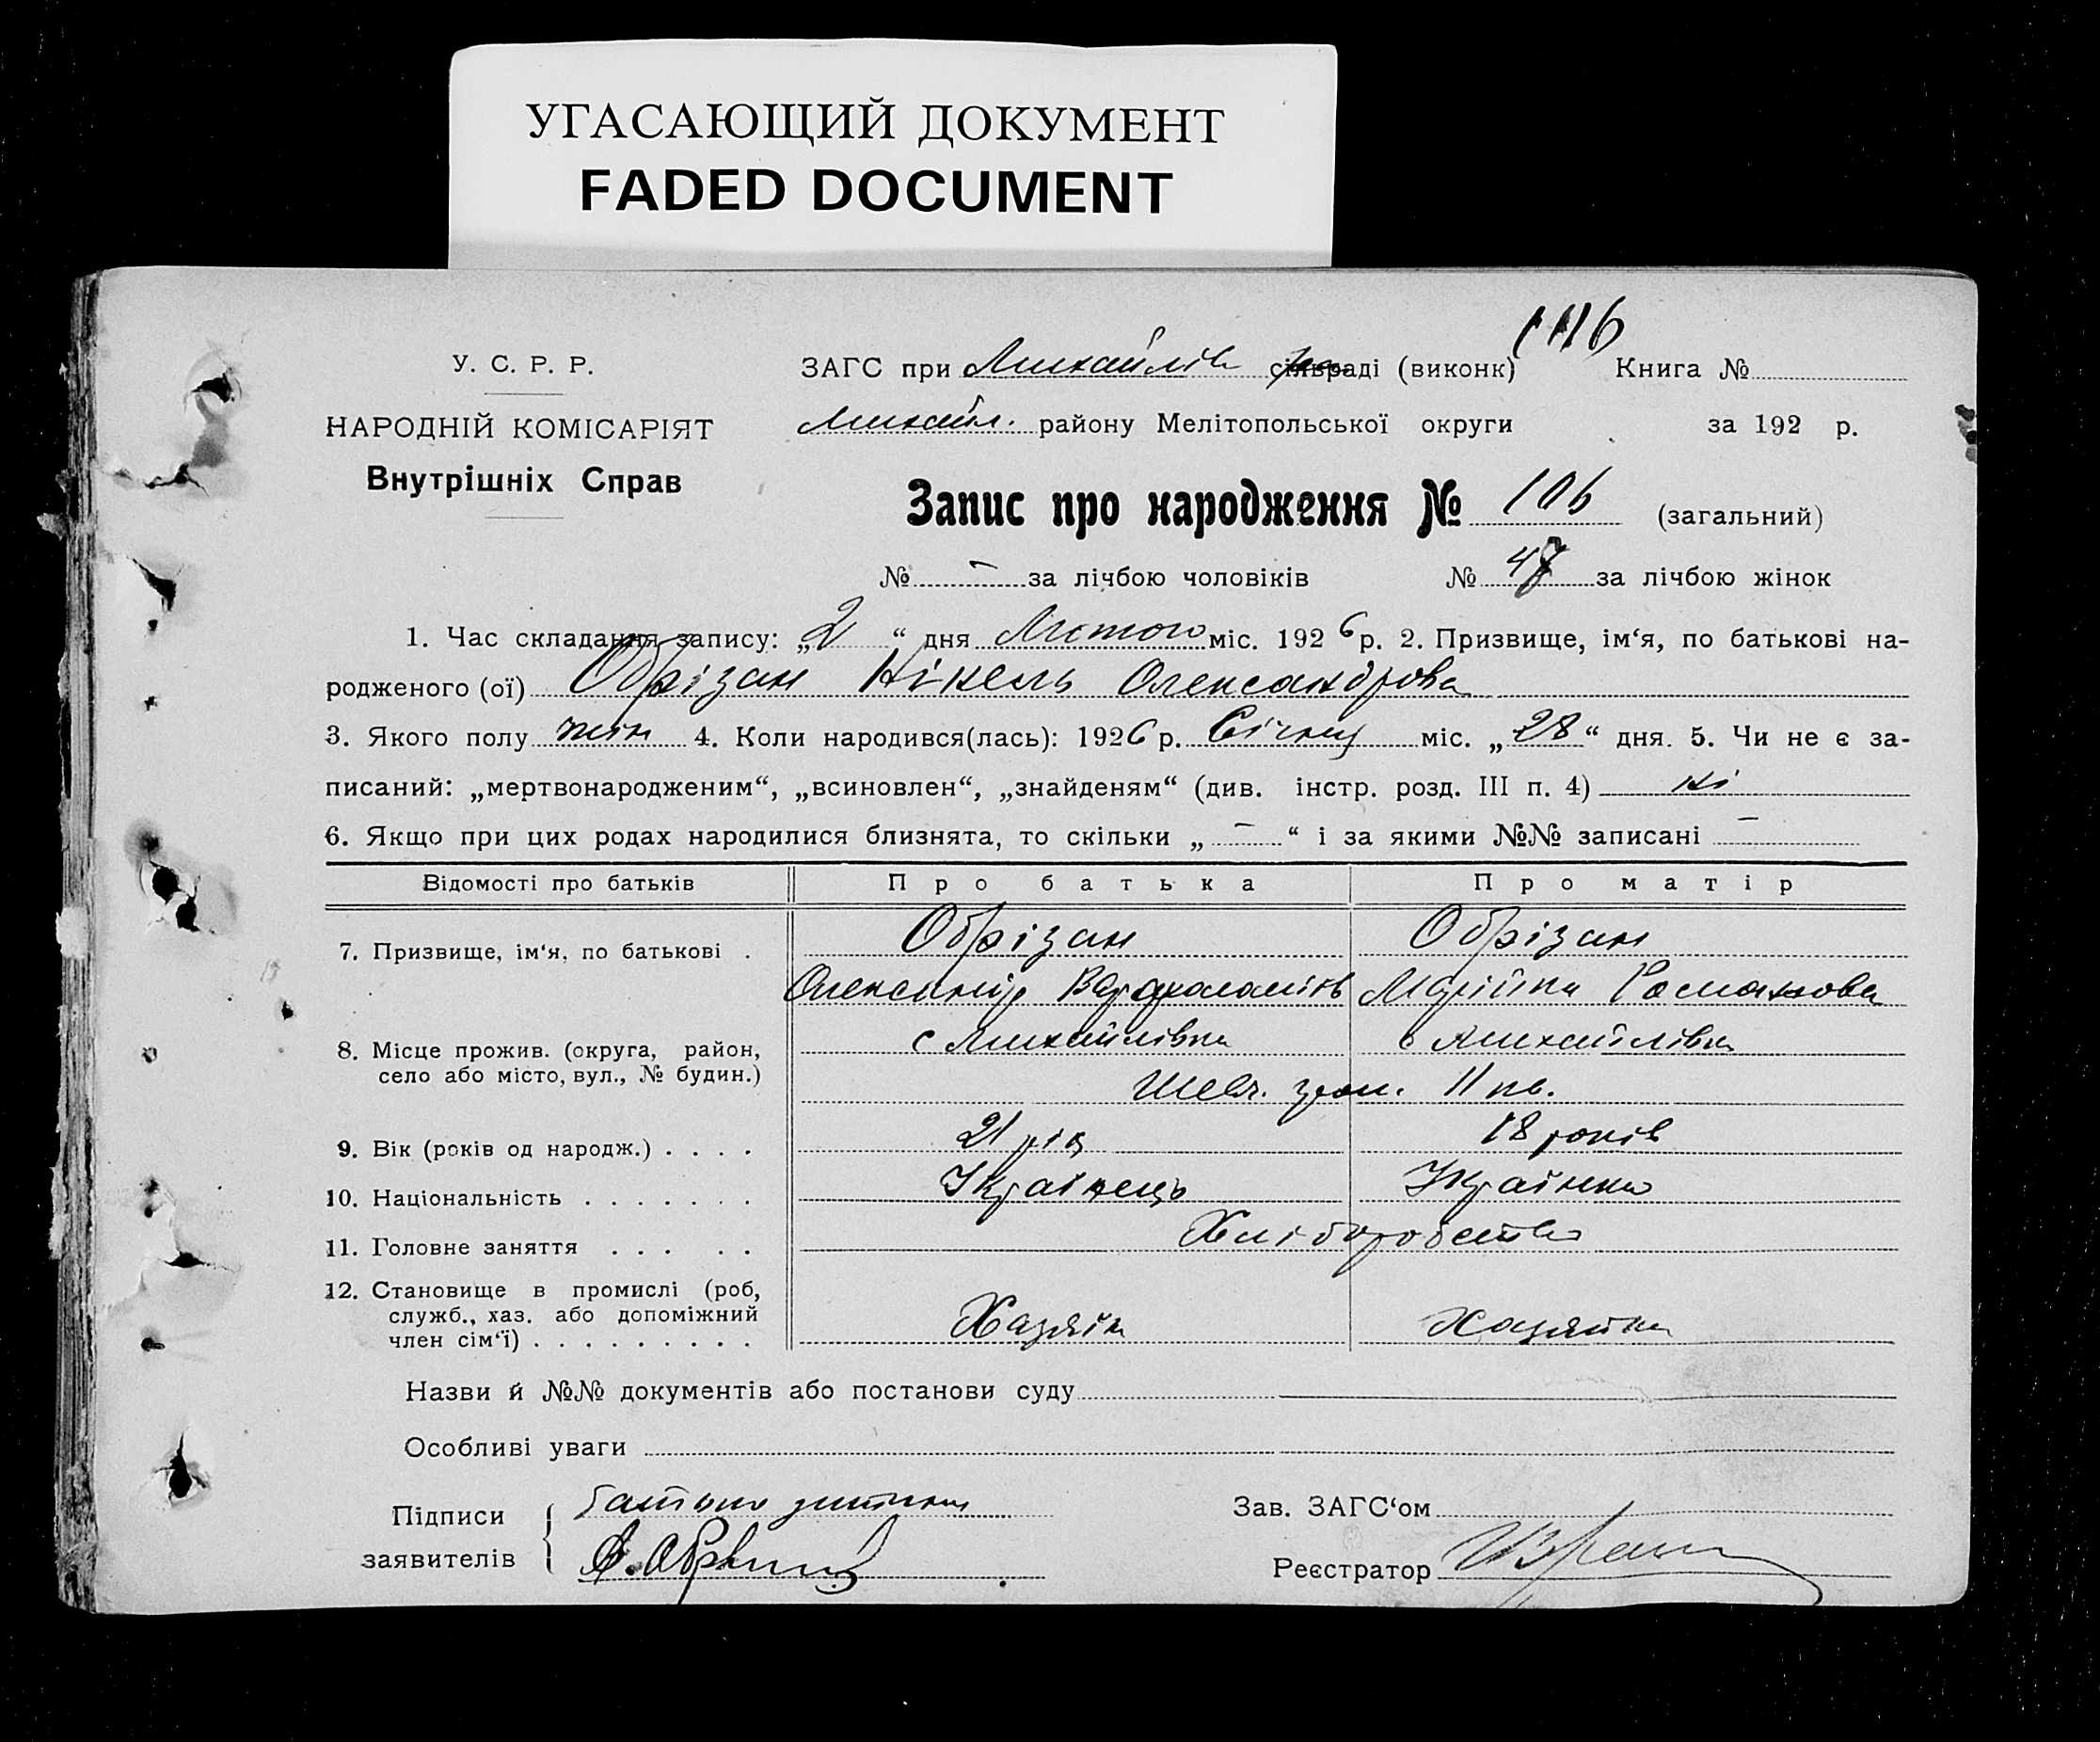 УГАСАЮЩИЙ ДОКУМЕНТ
FADED DOCUMENT
У. С. Р. Р.
НАРОДНІЙ КОМІСАРІЯТ
Внутрішніх Справ
116
ЗАГС при Михайлів сільраді (виконк) Книга №
Михайл. району Мелітопольської округи за 192 р.
Запис про народження № 106 (загальний)
№ - за лічбою чоловіків № 47 за лічбою жінок
1. Час складання запису: „2“ дня Лютого міс. 1926 р. 2. Призвище, ім‘я, по батькові на-
родженого (ої) Обрізан Нінель Олександрова
3. Якого полу жін 4. Коли народився(лась): 1926 р. Січня міс. „28“ дня. 5. Чи не є за-
писаний: „мертвонародженим“, „всиновлен“, „знайденям“ (див. інстр. розд. III п. 4) ні
6. Якщо при цих родах народилися близнята, то скільки „-“ і за якими №№ записані -
Відомості про батьків Про батька Про матір
7. Призвище, ім‘я, по батькові . Обрізан Обрізан
Олександр Варфоломіїв Марійка Романова
8. Місце прожив. (округа, район, с Михайлівка с Михайлівка
село або місто, вул., № будин.) Шевч. гром. 11 кв.
9. Вік (років од народж.) . . . . 21 рік 18 років
10. Національність . . . . . . . Українець Українка
11. Головне заняття . . . . . Хліборобство
12. Становище в промислі (роб,
служб., хаз. або допоміжний
член сім‘ї) . . . . . . . . . Хазяїн Хазяйка
Назви й №№ документів або постанови суду
Особливі уваги
Підписи батько дитини
заявителів
Зав. ЗАГС‘ом
Реєстратор